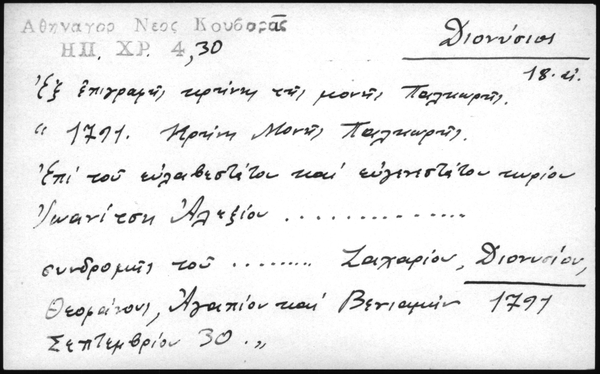 Αθηναγορ Νεος Κουβαρᾶς
ΗΠ. ΧΡ. 4, 30
Διονύσιος
18. αἰ.
Ἐξ ἐπιγραφῆς κρήνης τῆς μονῆς Παλιουρῆς.
" 1791. Κρήνη Μονῆς Παλιουρῆς.
Ἐπί τοῦ εὐλαβεστάτου καί εὐγενεστάτου κυρίου
Ἰωανίτση Ἀλεξίου ..............
συνδρομῆς τοῦ ......... Ζαχαρίου, Διονυσίου,
Θεοφάνους, Ἀγαπίου καί Βενιαμήν 1791
Σεπτεμβρίου 30 . „